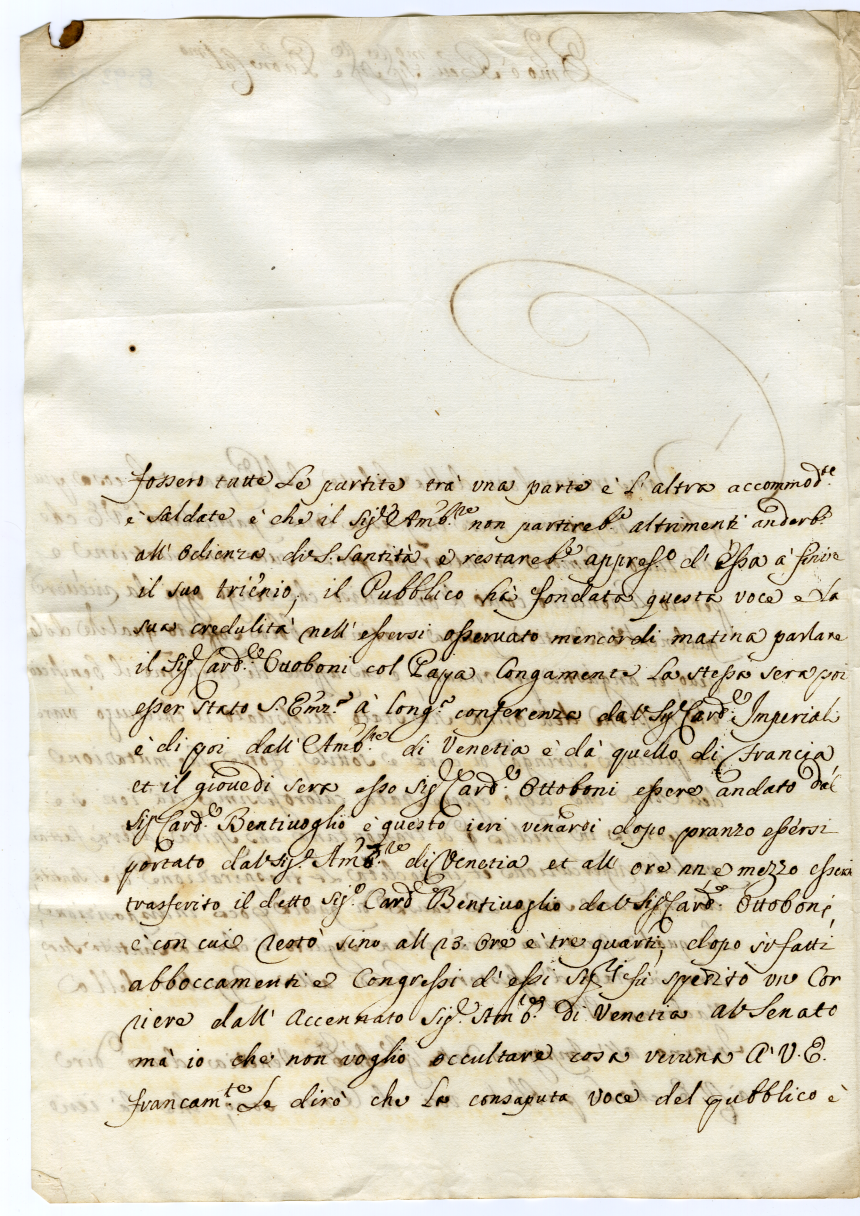 fossero tutte le partite trà una parte è l'altra accommod.te
è saldate è che il Sig.r Amb.re non partireb.e altrimenti anderb.e
all'Odienza di S. Santità e restareb.e appres.o d'essa à finire
il suo triẽnio, il Pubblico hà fondata questa voce e la
sua credulità nell'essersi osservato mercordi matina parlare
il Sig.r Card.le Ottoboni col Papa longamente la stessa sera poi
esser stato S. Emz.a à long.a conferenza dal Sig.r Card.le Imperiali
è di poi dall'Amb.re di Venetia è da quello di Francia
et il giovedi sera esso Sig.r Card.le Ottoboni essere andato dal
Sig.r Card.le Bentivoglio è questo ieri venardi dopo pranzo essersi
portato dal Sig.r Amb.re di Venetia et all ore 22 e mezzo essersi
trasferito il detto Sig.r Card.le Bentivoglio dal Sig.r Card.le Ottoboni,
è con cui restò sino all 23. Ore è tre quarti, dopo si fatti
abboccamenti e Congressi d'essi Sig.ri fù spedito un Cor
riere dall'Accennato Sig.r Amb.re di Venetia al Senato
mà io che non voglio occultare cosa veruna A' V. E.
francam.te Le dirò che La consaputa voce del pubblico è